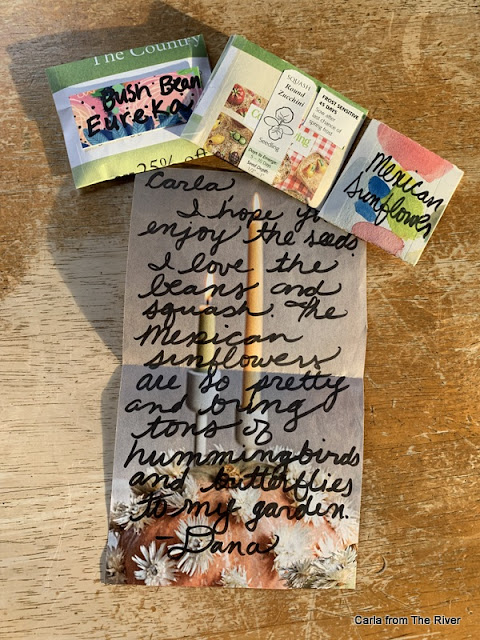 The Country
Bush Bean
Eureka
25% off
SQUASH
Round
Zucchini
Seedling
FROST SENSITIVE
45 DAYS
Sow after
last chance of
spring frost
Days to Emerge:
Seed Depth:
Mexican
Sunflower
Carla
I hope
enjoy the seeds.
I love the
beans and
squash. The
Mexican
sunflowers
are so pretty
and bring
tons of
hummingbirds
and butterflies
to my garden.
-Dana
Carla from The River